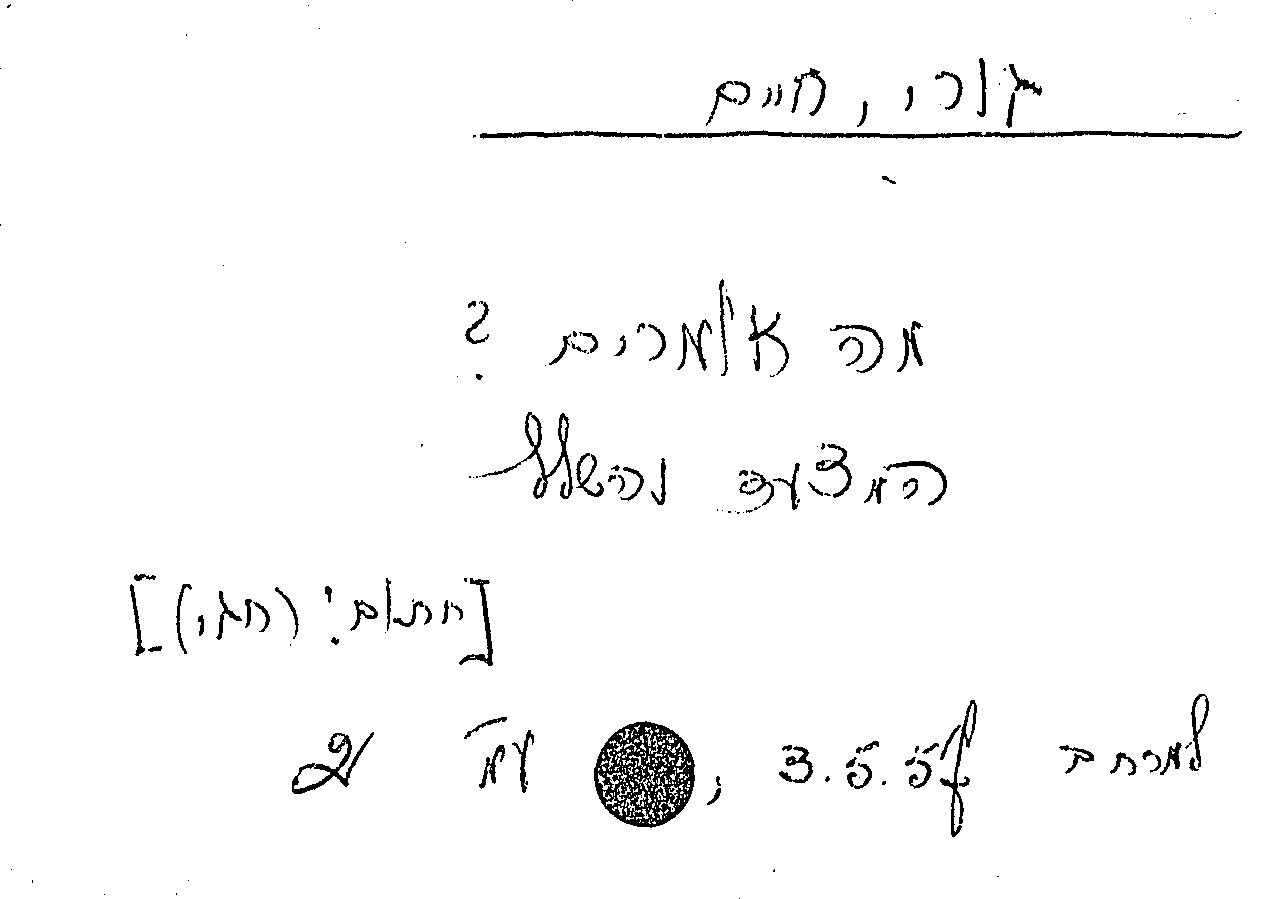 גורי, חיים
מה אומרים ?
המצעד והשלל
[חתום: (חגי)]
למרחב 3.5.57, עמ' 2